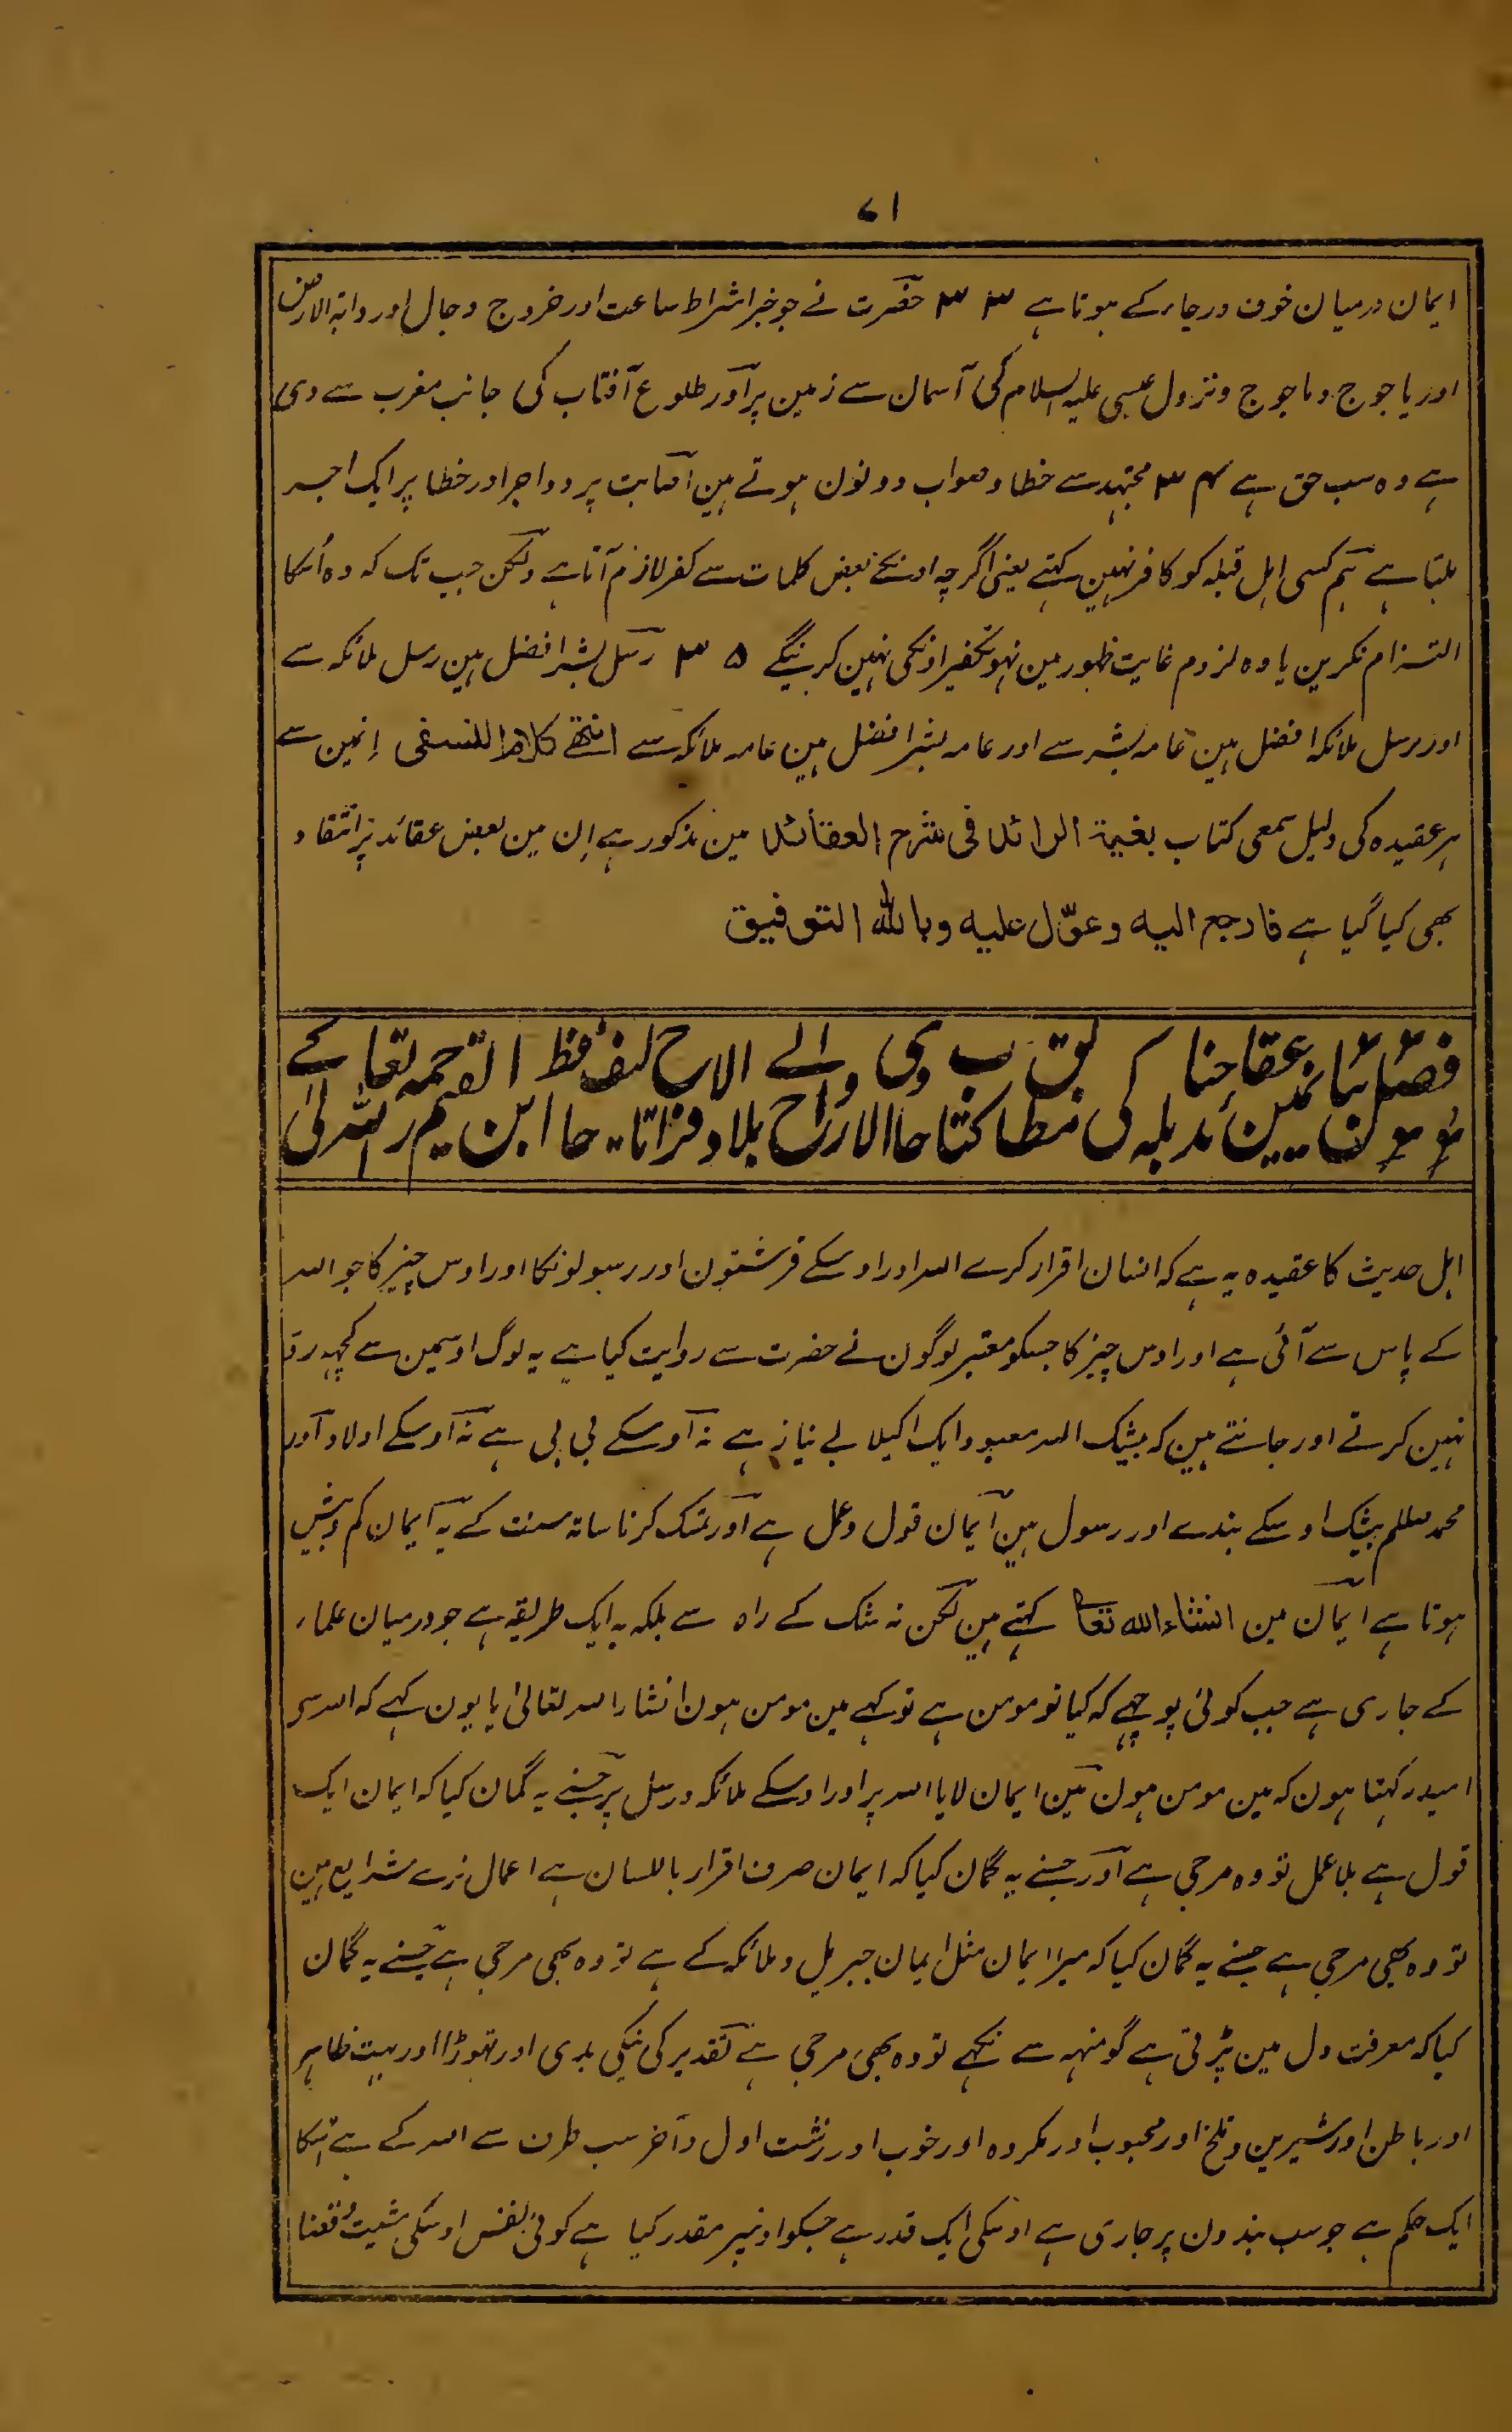 ۷۱
ایمان درمیان خوف ورجاء کے ہوتا ہے ۳۳ حضرت نے جو خبر اشراط ساعت اور خروج دجال اور دابۃ الارض
اور یاجوج وماجوج ونزول عیسی علیہ السلام کی آسمان سے زمین پر اور طلوع آفتاب کی جانب مغرب سے دی
ہے وہ سب حق ہے ۳۴ مجتہد سے خطا وصواب دونون ہوتے ہین اصابت پر دو اجر اور خطا پر ایک اجر
ملتا ہے ہم کسی اہل قبلہ کو کافر نہین کہتے یعنی اگرچہ اونکے بعض کلمات سے کفر لازم آتا ہے ولکن جب تک کہ وہ اُسکا
التزام نکرین یا وہ لزوم غایت ظہور مین نہو تکفیر اونکی نہین کرینگے ۳۵ رسل بشر افضل ہین رسل ملائکہ سے
اور رسل ملائکہ افضل ہین عامہ بشر سے اور عامہ بشر افضل ہین عامہ ملائکہ سے انتھے کلام النسفی اِنمین سے
ہر عقیدہ کی دلیل سمعی کتاب بغیۃ الرائد فی شرح العقائد مین مذکور ہے اِن مین بعض عقائد پر انتقاد
بھی کیا گیا ہے فارجع الیہ وعوّل علیہ وباللہ التوفیق
اہل حدیث کا عقیدہ یہ ہے کہ انسان اقرار کرے اللہ اور اوسکے فرشتون اور رسولونکا اور اوس چیز کا جو اللہ
کے پاس سے آئی ہے اور اوس چیز کا جسکو معتبر لوگون نے حضرت سے روایت کیا ہے یہ لوگ اوسمین سے کچہہ رد
نہین کرتے اور جانتے ہین کہ بیشک اللہ معبود ایک اکیلا بے نیاز ہے نہ اوسکے بی بی ہے نہ اوسکے اولاد اور
محمد صللم بیشک اوسکے بندے اور رسول ہین ایمان قول وعمل ہے اور تمسک کرنا ساتہ سنت کے یہ ایمان کم وبیش
ہوتا ہے ایمان مین انشاء اللہ تعا کہتے ہین لکن نہ شک کے راہ سے بلکہ یہ ایک طریقہ ہے جو درمیان علماء
کے جاری ہے جب کوئی پوچھے کہ کیا تو مومن ہے تو کہے مین مومن ہون انشاء اللہ تعالیٰ یا یون کہے کہ اللہ سے
امید رکہتا ہون کہ مین مومن ہون مین ایمان لایا اللہ پر اور اوسکے ملائکہ ورسل پر جسنے یہ گمان کیا کہ ایمان ایک
قول ہے بلا عمل تو وہ مرجی ہے اور جسنے یہ گمان کیا کہ ایمان صرف اقرار باللسان ہے اعمال نرے شرایع ہین
تو وہ بھی مرجی ہے جسنے یہ گمان کیا کہ میرا ایمان مثل ایمان جبریل وملائکہ کے ہے تو وہ بھی مرجی ہے جسنے یہ گمان
کیا کہ معرفت دل مین پڑتی ہے گو منہہ سے نکہے تو وہ بھی مرجی ہے تقدیر کی نیکی بدی اور تہوڑا اور بہت ظاہر
اور باطن اور شیرین وتلخ اور محبوب اور مکروہ اور خوب اور زشت اول وآخر سب طرف سے اللہ کے ہے اسکا
ایک حکم ہے جو سب بندون پر جاری ہے اوسکی ایک قدر ہے جسکو اونپر مقدر کیا ہے کوئی نفس اوسکی مشیت وقضا